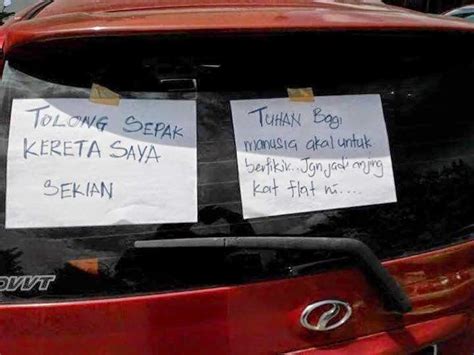 TOLONG SEPAK
KERETA SAYA
SEKIAN
TUHAN Bagi
manusia akal untuk
berfikir...Jgn jadi anjing
kat flat ni....
DVVT